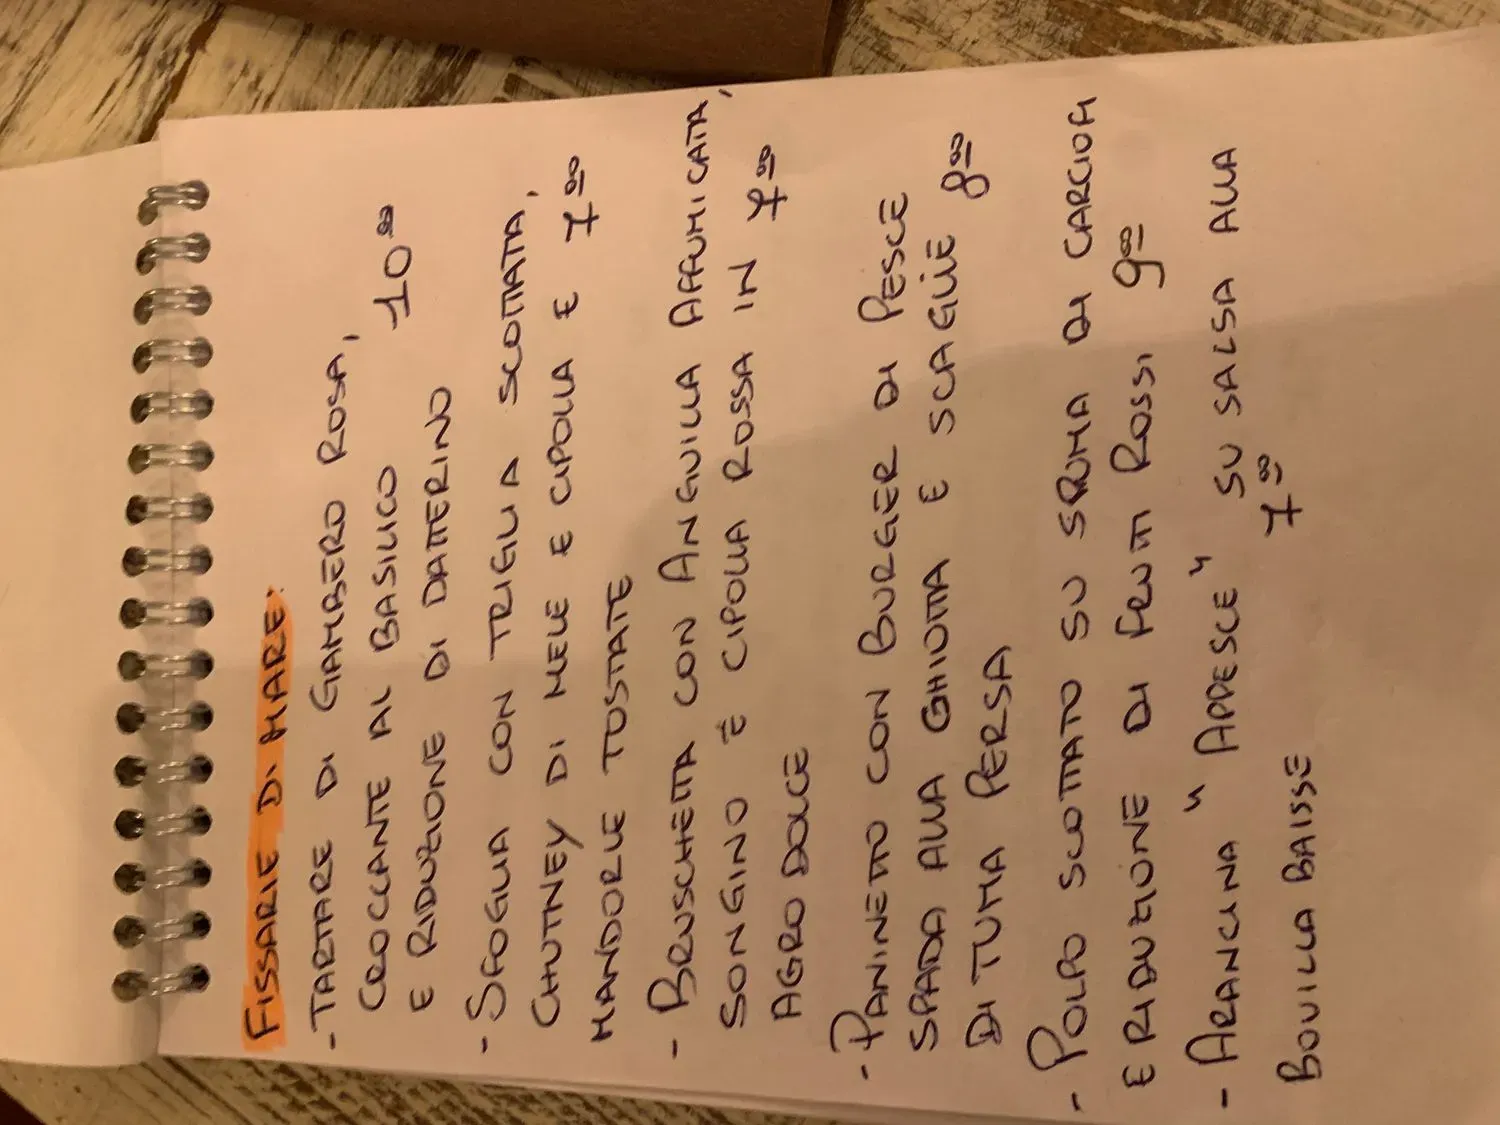 FISSARIE DI MARE:
- TARTARE DI GAMBERO ROSA,
CROCCANTE AL BASILICO 10⁰⁰
E RIDUZIONE DI DATTERINO
- SFOGLIA CON TRIGLIA SCOTTATA,
CHUTNEY DI MELE E CIPOLLA E 7⁰⁰
MANDORLE TOSTATE
- BRUSCHETTA CON ANGUILLA AFFUMICATA,
SONGINO E CIPOLLA ROSSA IN 7⁰⁰
AGRODOLCE
- PANINETTO CON BURGER DI PESCE
SPADA ALLA GHIOTTA E SCAGLIE 8⁰⁰
DI TUMA PERSA
- POLPO SCOTTATO SU SPUMA DI CARCIOFI
E RIDUZIONE DI FRUTTI ROSSI 9⁰⁰
- ARANCINA "APPESCE" SU SALSA ALLA
BOUILLA BAISSE 7⁰⁰